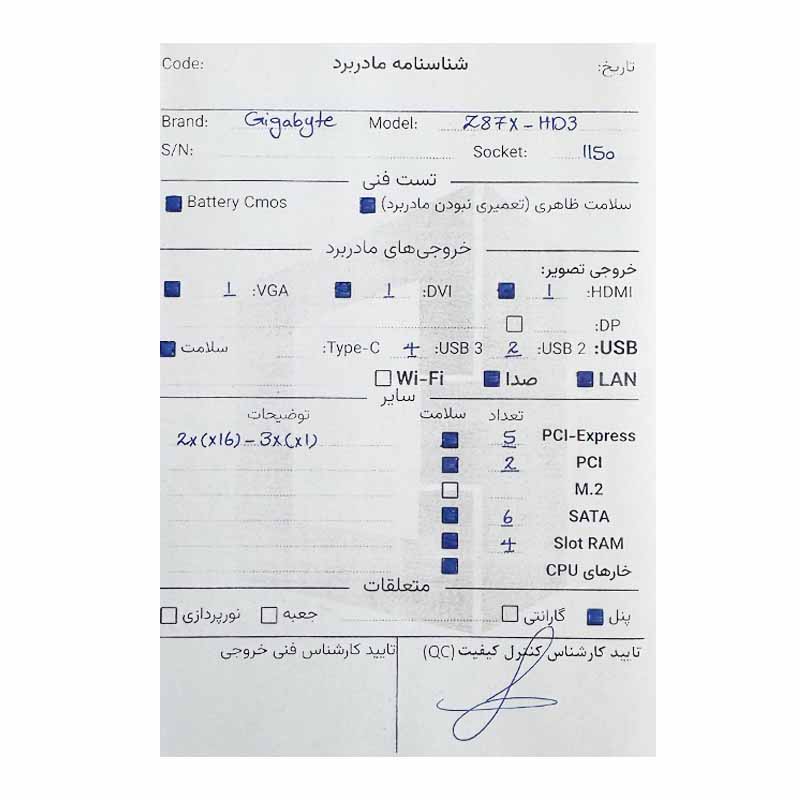 تاریخ: شناسنامه مادربرد Code:
Brand: Gigabyte Model: Z87X-HD3
S/N: Socket: 1150
تست فنی
سلامت ظاهری (تعمیری نبودن مادربرد) Battery Cmos
خروجی‌های مادربرد
خروجی تصویر:
HDMI: 1 DVI: 1 VGA: 1
DP:
USB: USB 2: 2 USB 3: 4 Type-C: سلامت
LAN صدا Wi-Fi
سایر
تعداد سلامت توضیحات
PCI-Express 5 2x(x16) - 3x(x1)
PCI 2
M.2
SATA 6
Slot RAM 4
خارهای CPU
متعلقات
پنل گارانتی جعبه نورپردازی
تایید کارشناس کنترل کیفیت (QC) تایید کارشناس فنی خروجی